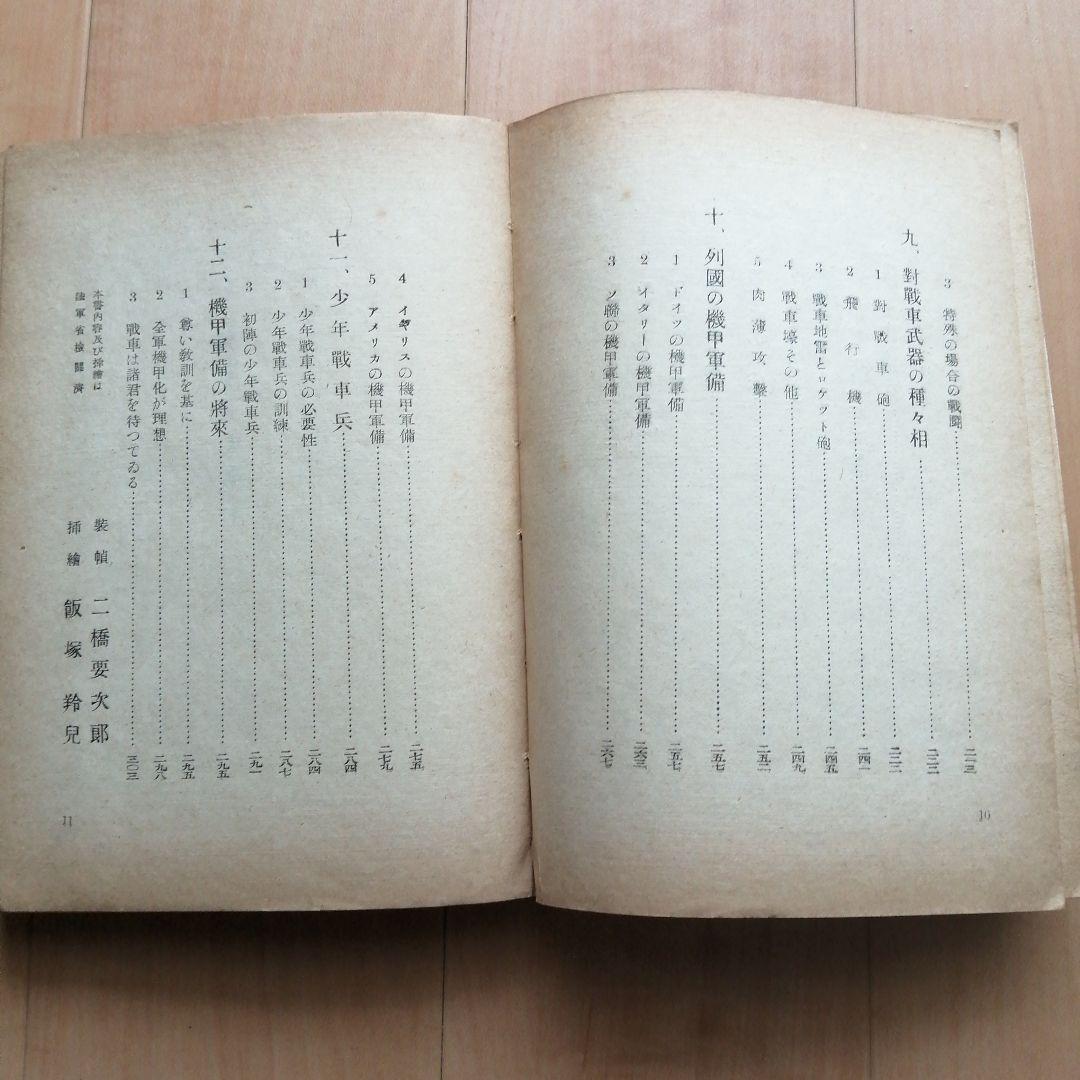 3 特殊の場合の戰鬪……二一三
九、對戰車武器の種々相……二三二
1 對戰車砲……二三二
2 飛行機……二四一
3 戰車地雷とロケツト砲……二四五
4 戰車壕その他……二四九
5 肉薄攻擊……二五二
十、列國の機甲軍備……二五七
1 ドイツの機甲軍備……二五七
2 イタリーの機甲軍備……二六三
3 ソ聯の機甲軍備……二六七
10
4 イギリスの機甲軍備……二七五
5 アメリカの機甲軍備……二七九
十一、少年戰車兵……二八四
1 少年戰車兵の必要性……二八四
2 少年戰車兵の訓練……二八七
3 初陣の少年戰車兵……二九一
十二、機甲軍備の將來……二九五
1 尊い敎訓を基に……二九五
2 全軍機甲化が理想……二九八
3 戰車は諸君を待つてゐる……三〇三
本書內容及び揷繪は
陸軍省檢閱濟
裝幀 二橋要次郞
揷繪 飯塚羚兒
11